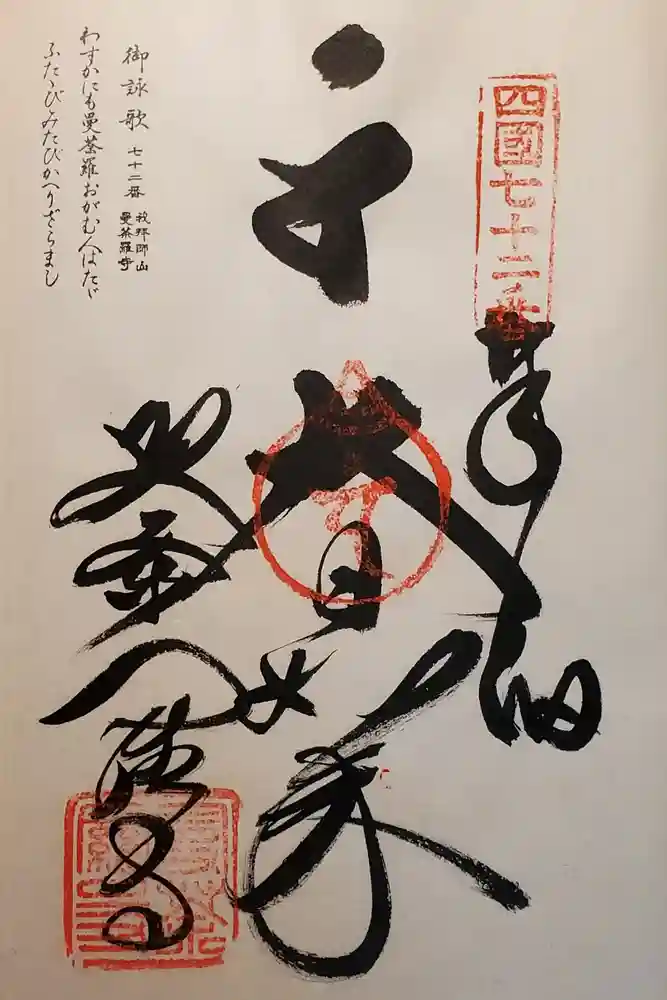 四國七十二番
奉納
大日如来
曼荼羅寺
御詠歌 七十二番 我拝師山
曼荼羅寺
わずかにも曼荼羅おがむ人はたゞ
ふたゝびみたびかへらざらまし